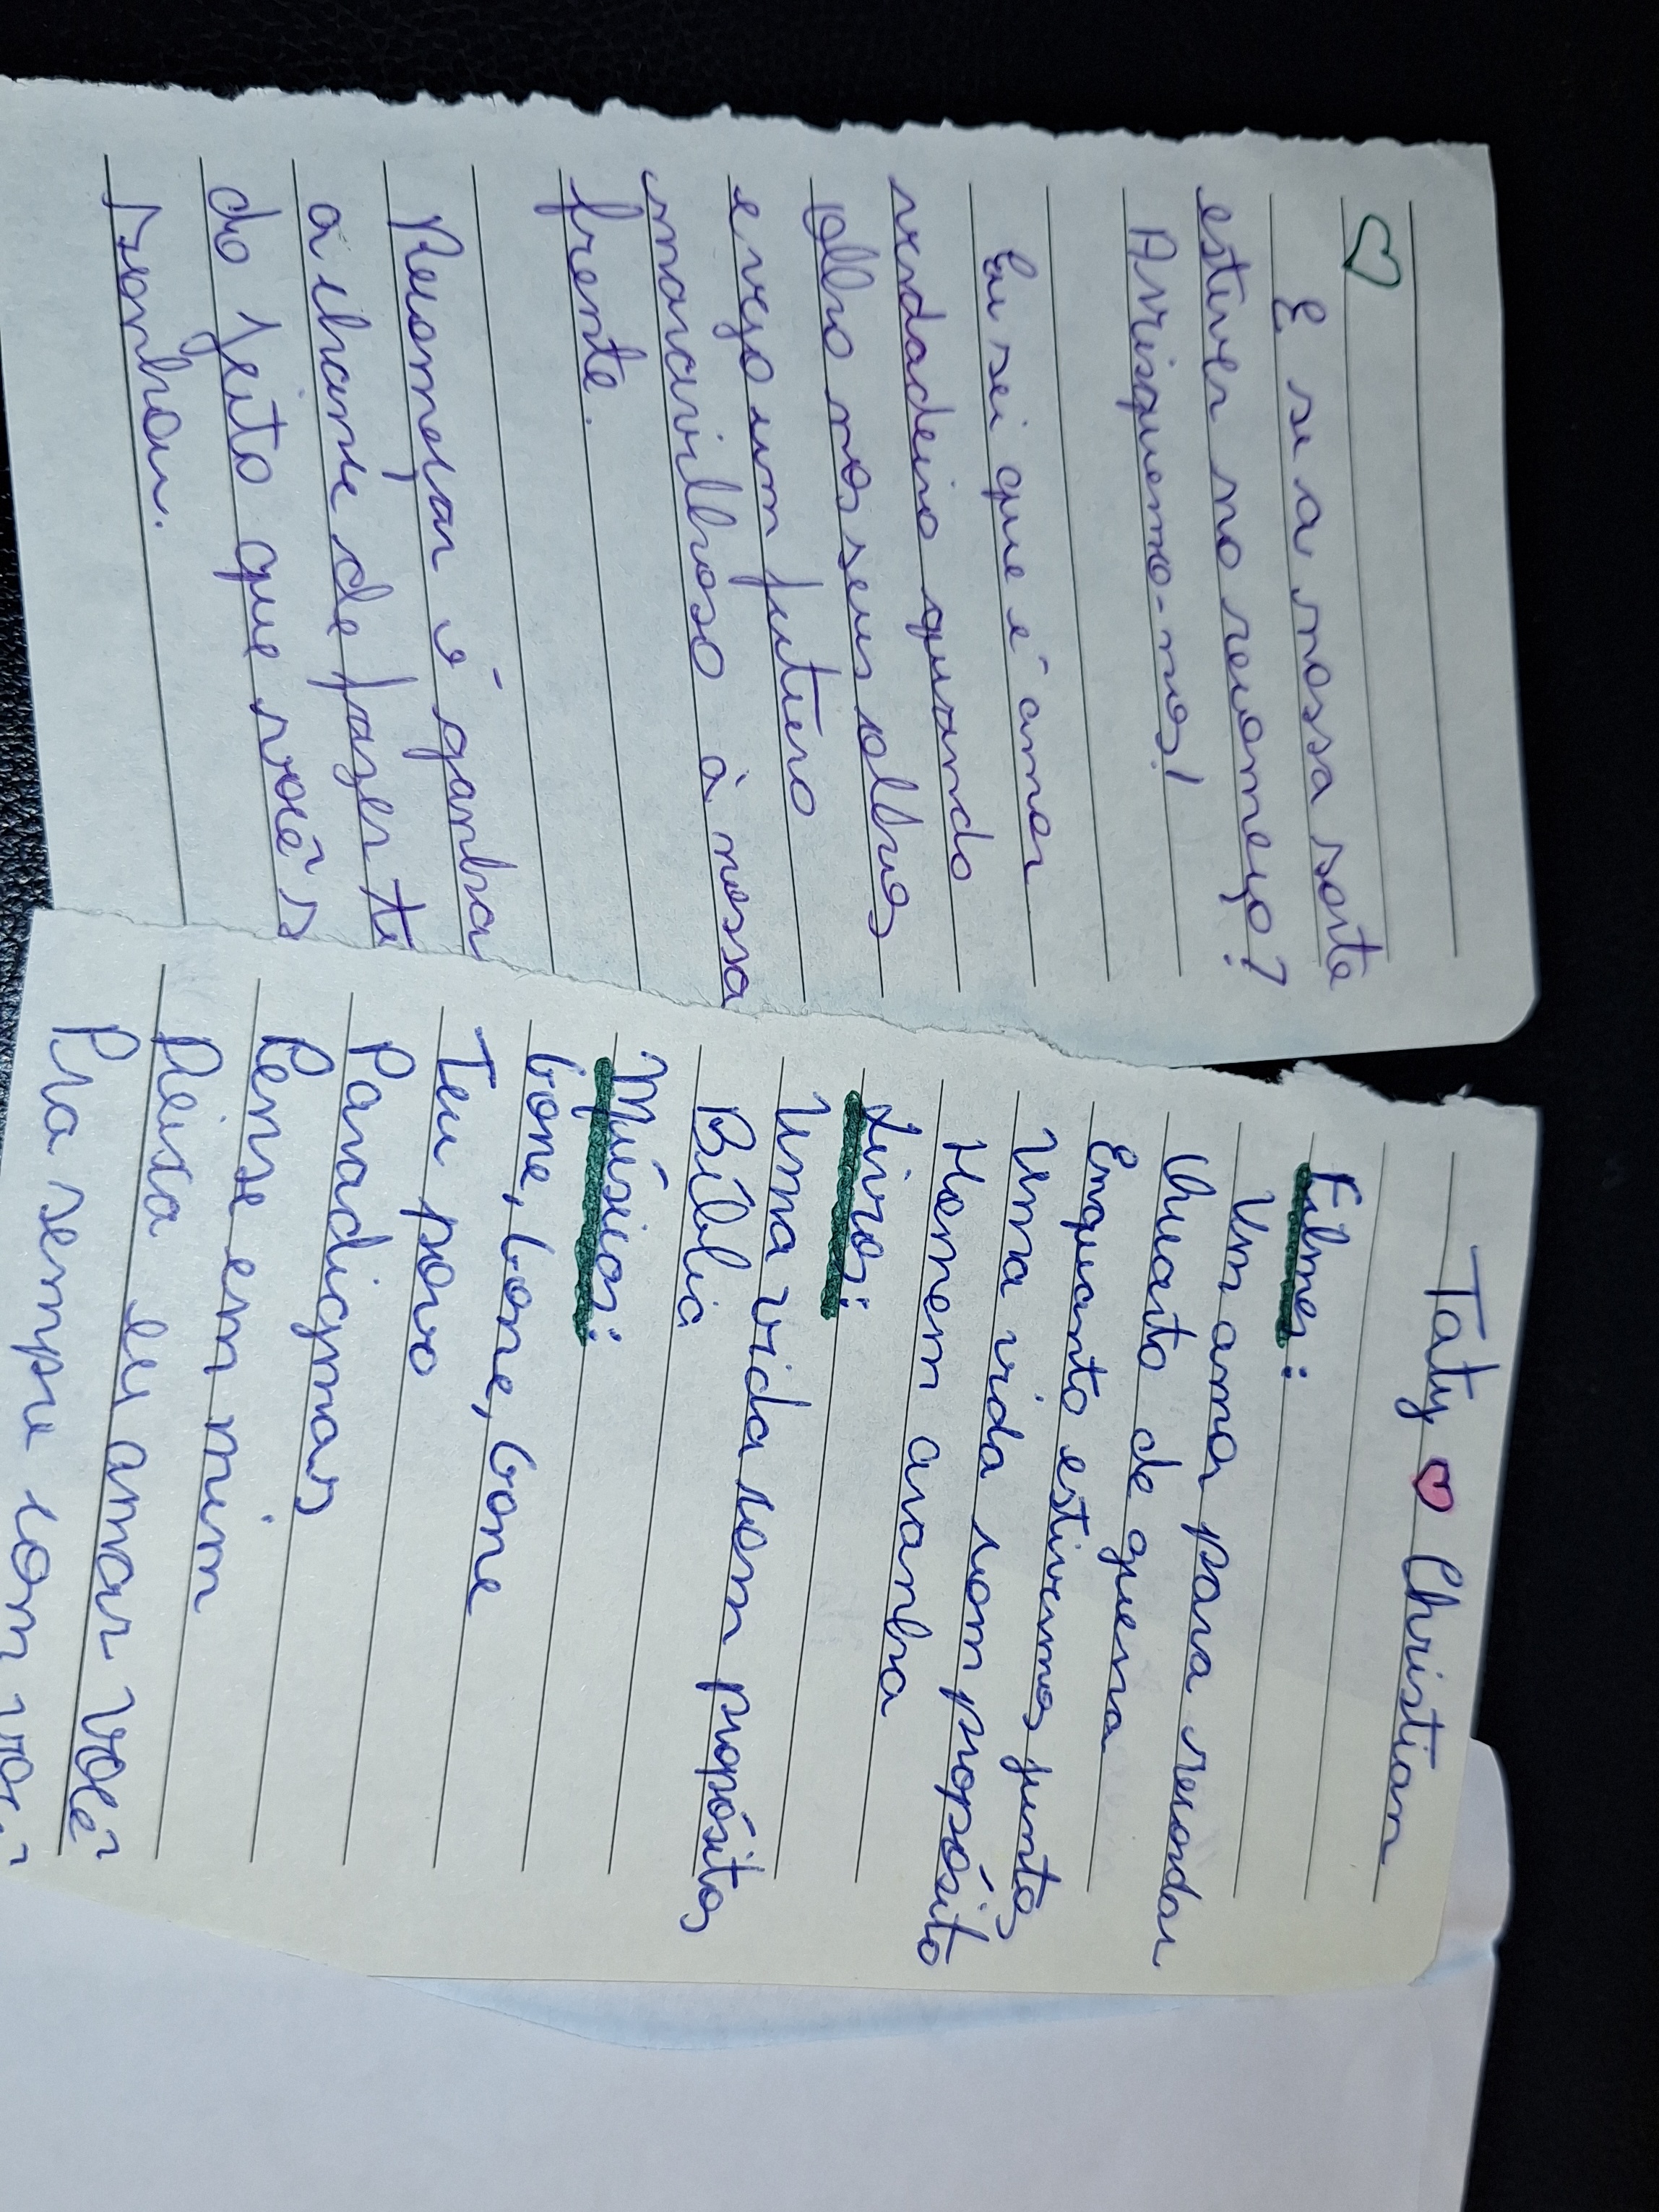 E se a nossa sorte
estiver no recomeço?
Arrisquemo-nos!
Eu sei que é amor
verdadeiro quando
olho nos seus olhos
e vejo um futuro
maravilhoso à nossa
frente.
Recomeçar é ganha
a chance de fazer
do jeito que você
sonhou.
Taty Christian
Filmes:
Um amor para recordar
Quarto de guerra
Enquanto estivermos juntos
Uma vida com propósito
Homem aranha
Livros:
Uma vida com propósitos
Bíblia
Músicas:
Gone, Gone, Gone
Teu povo
Paradigmas
Pense em mim
Deixa eu amar você
Pra sempre com você